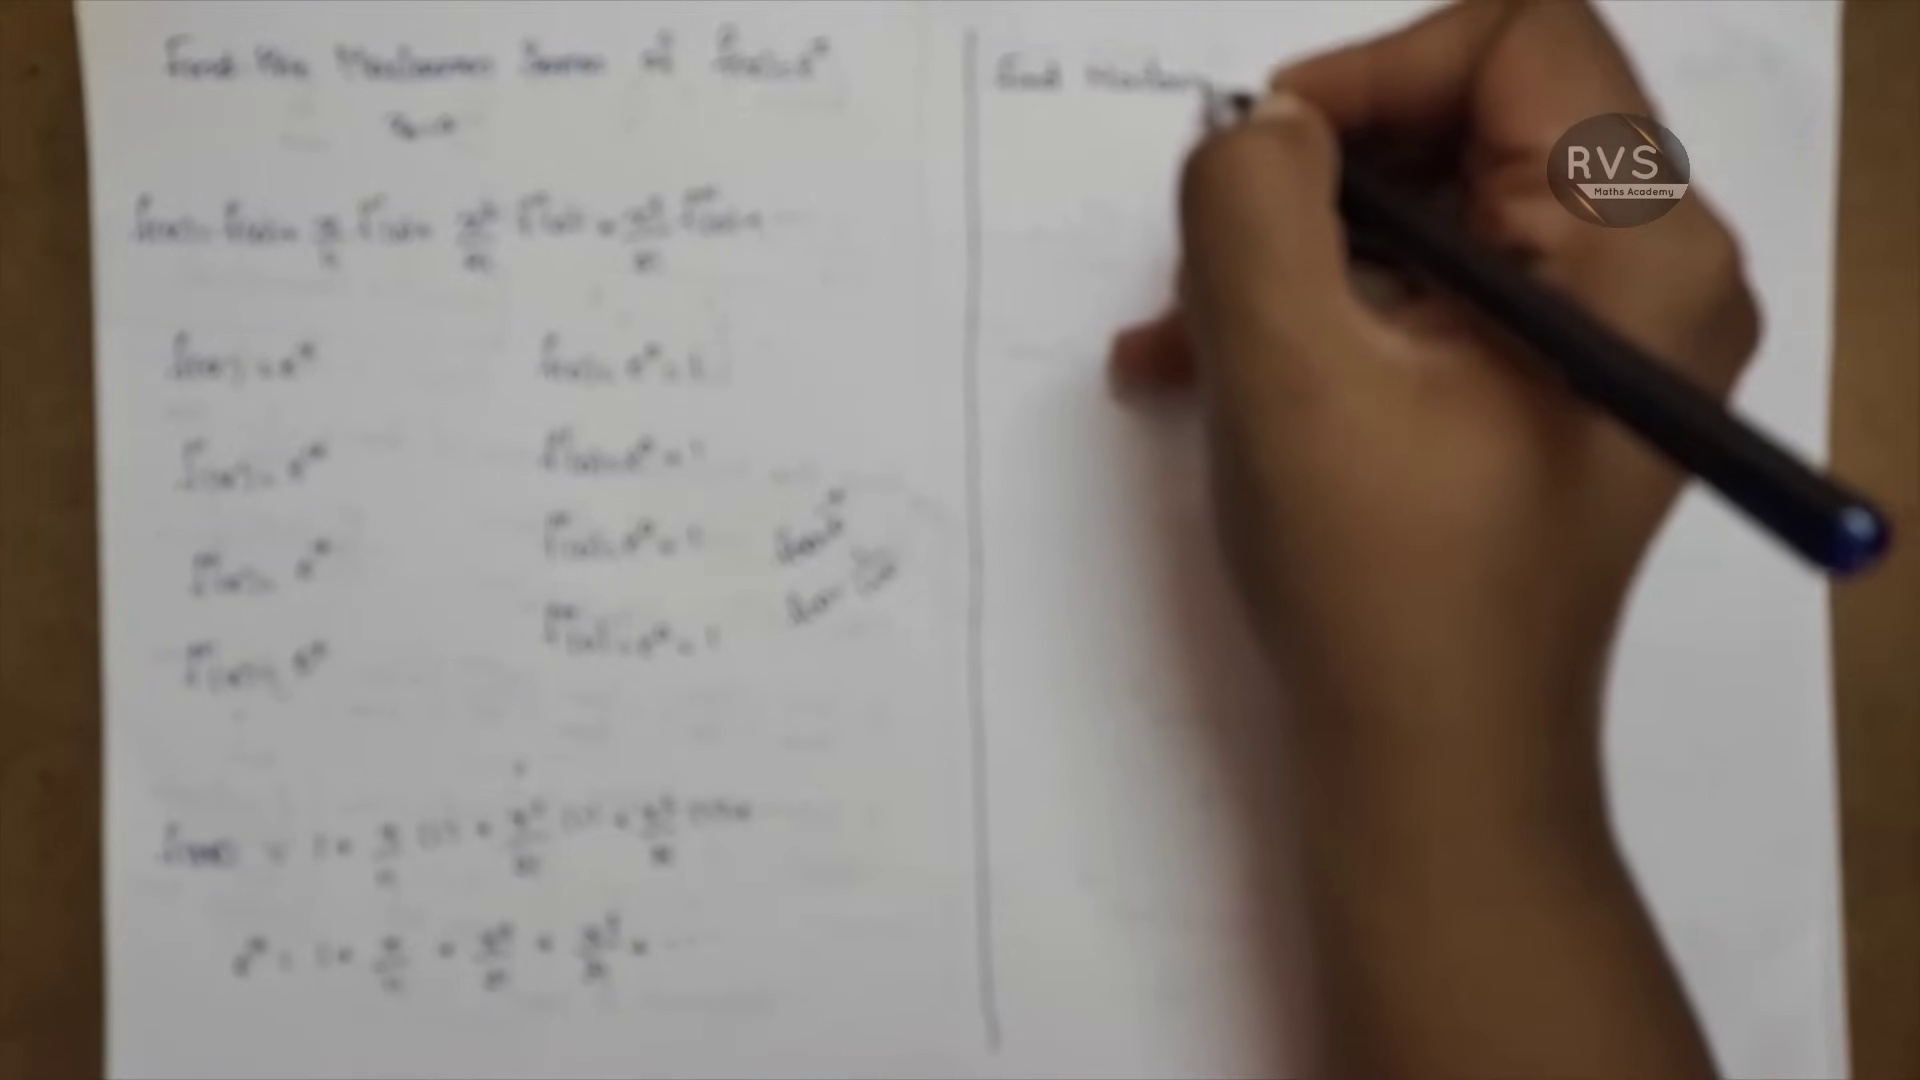 Find the Maclaurin Series of f(x) = e^x
f(x) = f(0) + x/1! f'(0) + x²/2! f''(0) + x³/3! f'''(0) + ...
f(x) = e^x
f(0) = e^0 = 1
f'(x) = e^x
f'(0) = e^0 = 1
f''(x) = e^x
f''(0) = e^0 = 1
f'''(x) = e^x
f'''(0) = e^0 = 1
f(x) = 1 + x/1! (1) + x²/2! (1) + x³/3! (1) +
e^x = 1 + x/1! + x²/2! + x³/3! + ...
Find
RVS
Maths Academy